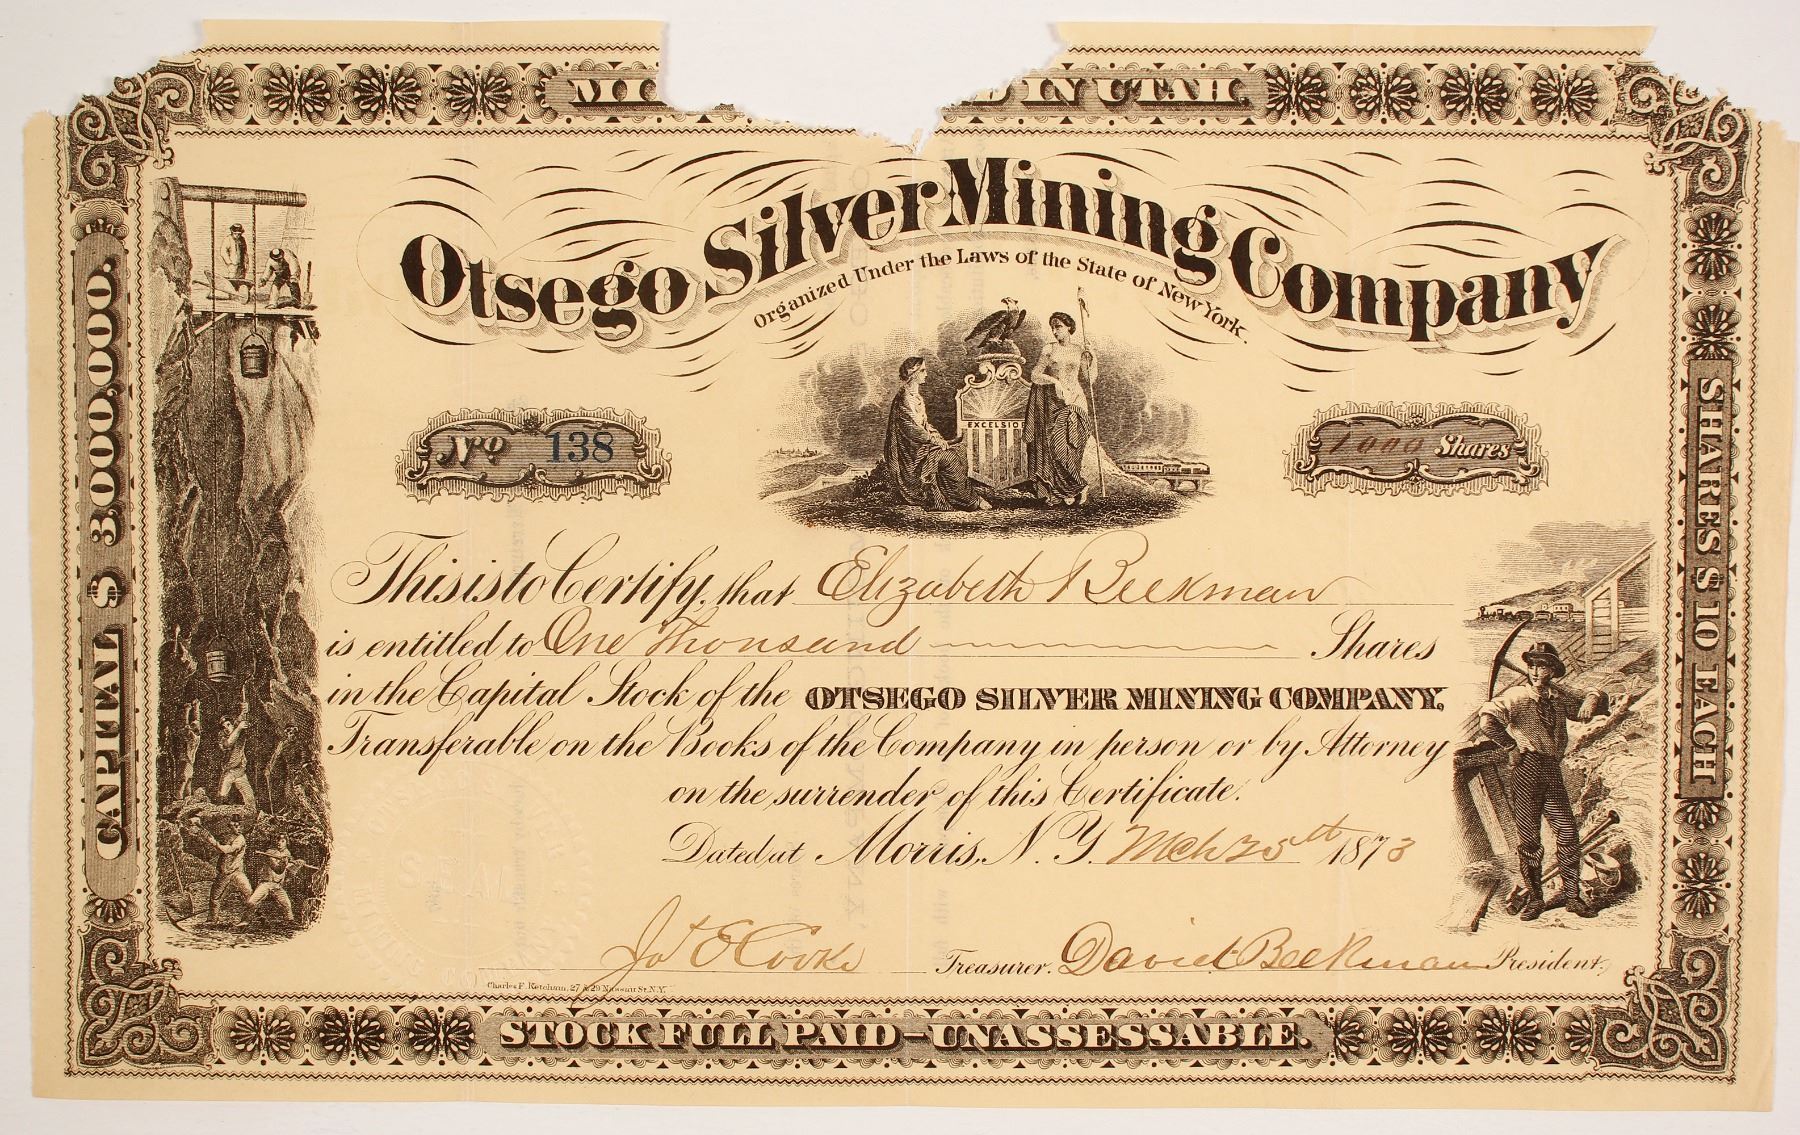 MI D IN UTAH.
Otsego Silver Mining Company
Organized Under the Laws of the State of New York.
EXCELSIO
No 138
1000 Shares
CAPITAL $3,000,000.
SHARES $10 EACH
This is to Certify, that Elizabeth Beekman
is entitled to One Thousand Shares
in the Capital Stock of the OTSEGO SILVER MINING COMPANY,
Transferable on the Books of the Company in person or by Attorney
on the surrender of this Certificate.
Dated at Morris, N.Y. Mch 25th 1873
Jo E Cooke Treasurer. David Beekman President.
Charles F. Ketcham, 27 & 29 Nassau St. N.Y.
SEAL
STOCK FULL PAID—UNASSESSABLE.